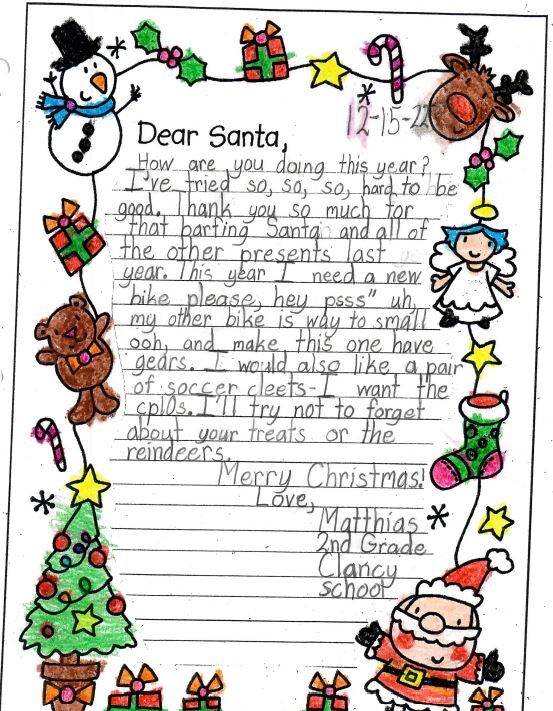 12-15-22
Dear Santa,
How are you doing this year?
I've tried so, so, so, hard to be
good. Thank you so much for
that barfing Santa and all of
the other presents last
year. This year I need a new
bike please, hey psss" uh,
my other bike is way to small
ooh, and make this one have
gears. I would also like a pair
of soccer cleets-I want the
cpl0s. I'll try not to forget
about your treats or the
reindeers.
Merry Christmas!
Love,
Matthias
2nd Grade
Clancy
school